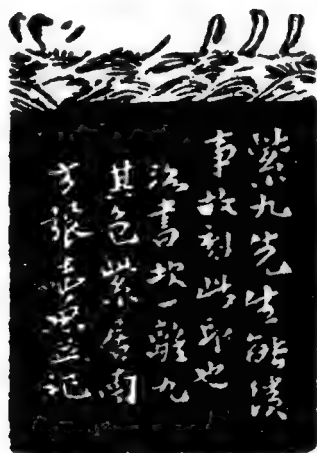 紫九先生能績
事故刻此印也
洛書坎一離九
其色紫居南
方張
記